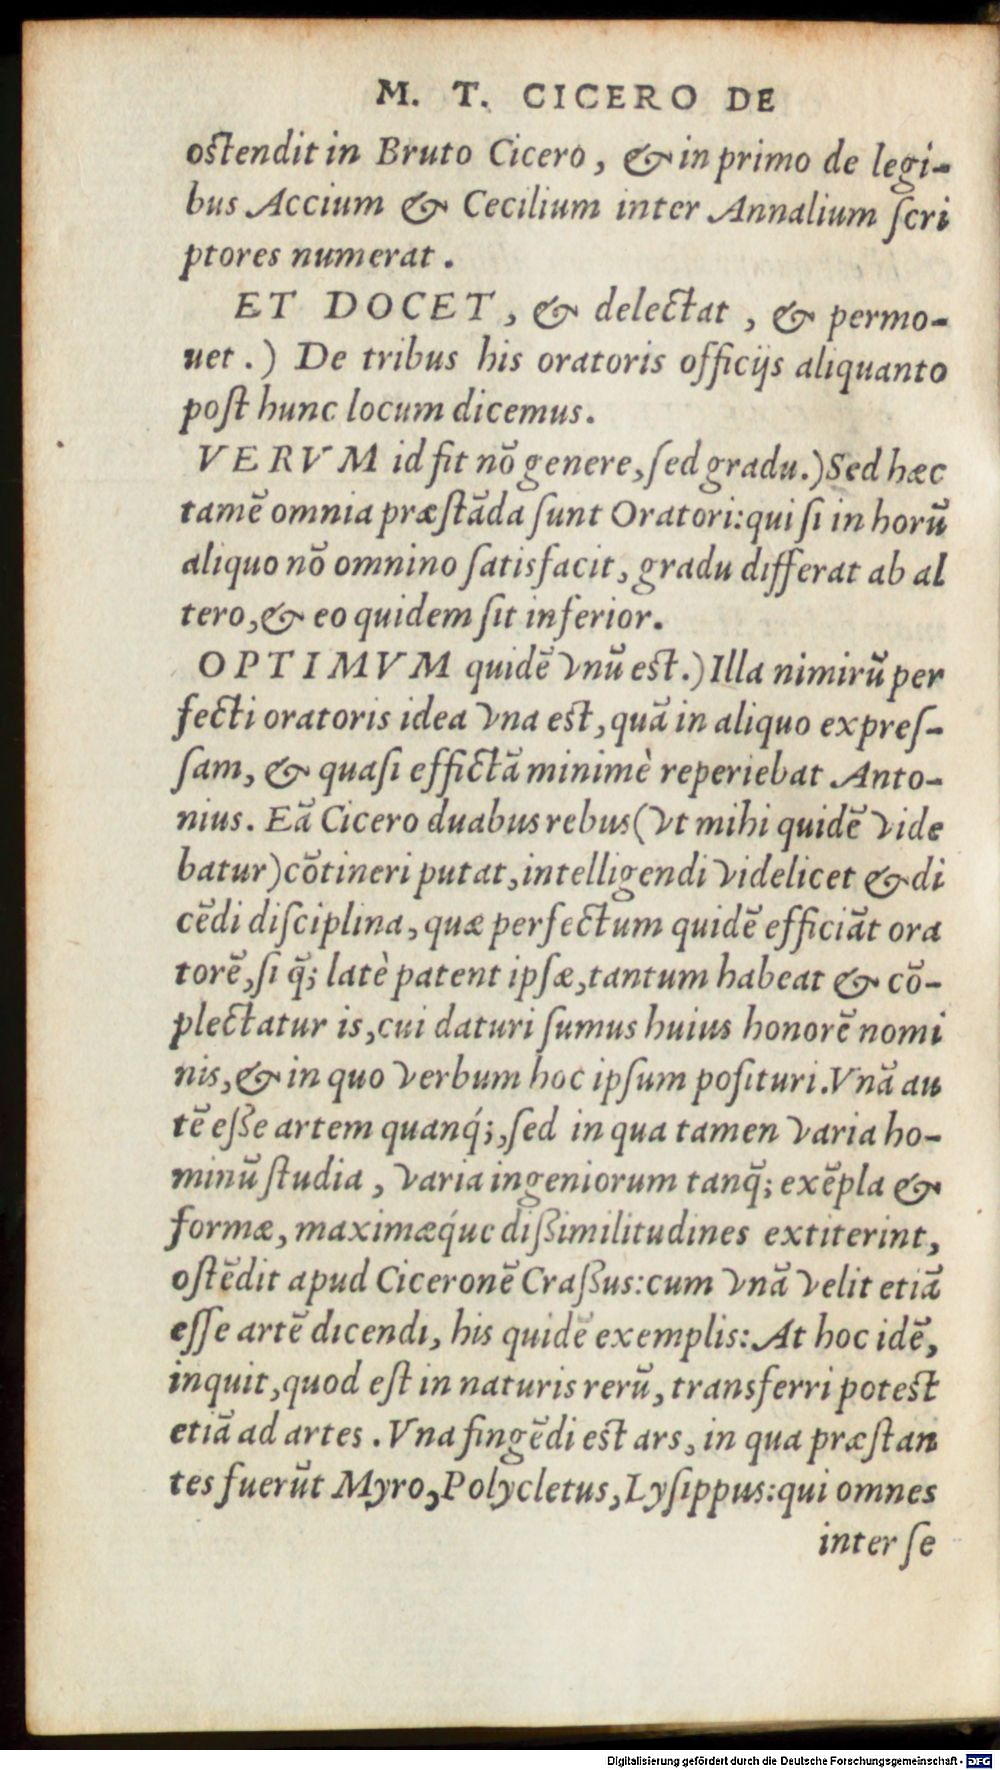 M. T. CICERO DE
ostendit in Bruto Cicero, & in primo de legi-
bus Accium & Cecilium inter Annalium ſcri
ptores numerat.
ET DOCET, & delectat, & permo-
uet.) De tribus his oratoris officijs aliquanto
poſt hunc locum dicemus.
VERVM id fit nō genere, ſed gradu.) Sed hæc
tamē omnia præſtāda ſunt Oratori: qui ſi in horū
aliquo nō omnino ſatisfacit, gradu differat ab al
tero, & eo quidem ſit inferior.
OPTIMVM quidē vnū est.) Illa nimirū per
fecti oratoris idea vna est, quā in aliquo expreſ-
ſam, & quaſi effictā minimè reperiebat Anto-
nius. Eā Cicero duabus rebus (vt mihi quidē vide
batur) cōtineri putat, intelligendi videlicet & di
cēdi diſciplina, quæ perfectum quidē efficiāt ora
torē, ſi q̃; latè patent ipſæ, tantum habeat & cō-
plectatur is, cui daturi ſumus huius honorē nomi
nis, & in quo verbum hoc ipſum poſituri. Vnā au
tē eſſe artem quanq́;, ſed in qua tamen varia ho-
minū ſtudia, varia ingeniorum tanq̃; exēpla &
formæ, maximæq́ue diſſimilitudines extiterint,
oſtēdit apud Ciceronē Craſſus: cum vnā velit etiā
eſſe artē dicendi, his quidē exemplis: At hoc idē,
inquit, quod eſt in naturis rerū, transferri potest
etiā ad artes. Vna fingēdi est ars, in qua præſtan
tes fuerūt Myro, Polycletus, Lyſippus: qui omnes
inter ſe
Digitalisierung gefördert durch die Deutsche Forschungsgemeinschaft - DFG